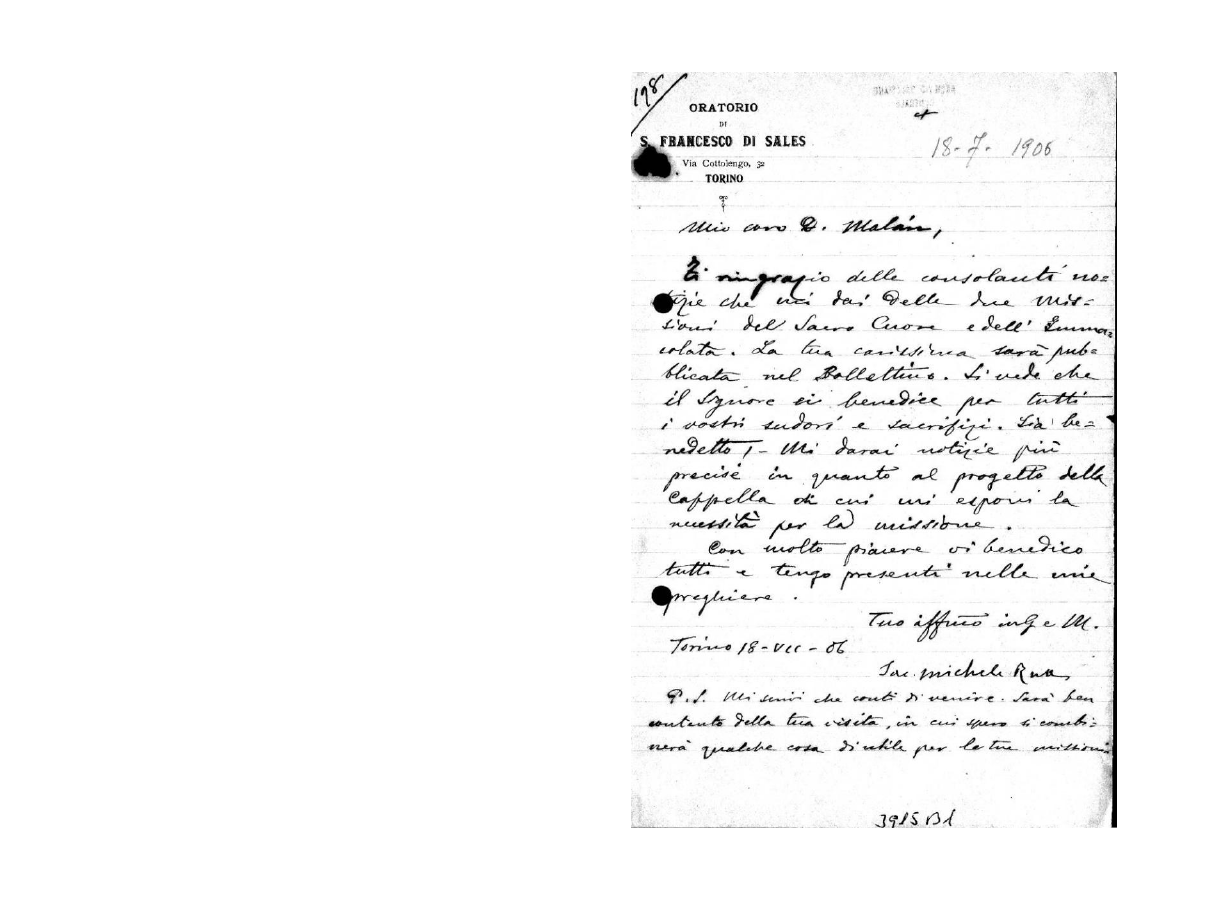 198
ORATORIO
DI
S. FRANCESCO DI SALES
Via Cottolengo, 32
TORINO
18-7- 1906
Mio caro D. Malán,
Ti ringrazio delle consolanti no=
tizie che mi dai delle due mis=
sioni del Sacro Cuore e dell' Imma=
colata. La tua carissima sarà pub=
blicata nel Bollettino. Si vede che
il Signore vi benedice per tutti
i vostri sudori e sacrifizi. Sia be=
nedetto! - Mi darai notizie più
precise in quanto al progetto della
Cappella di cui mi esponi la
necessità per la missione.
Con molto piacere vi benedico
tutti e tengo presenti nelle mie
preghiere.
Tuo affmo in G e M.
Torino 18-VII-06
Sac. Michele Rua
P.S. Mi scrivi che conti di venire. Sarò ben
contento della tua visita, in cui spero si combi=
nerà qualche cosa di utile per le tue missioni
3915 B1